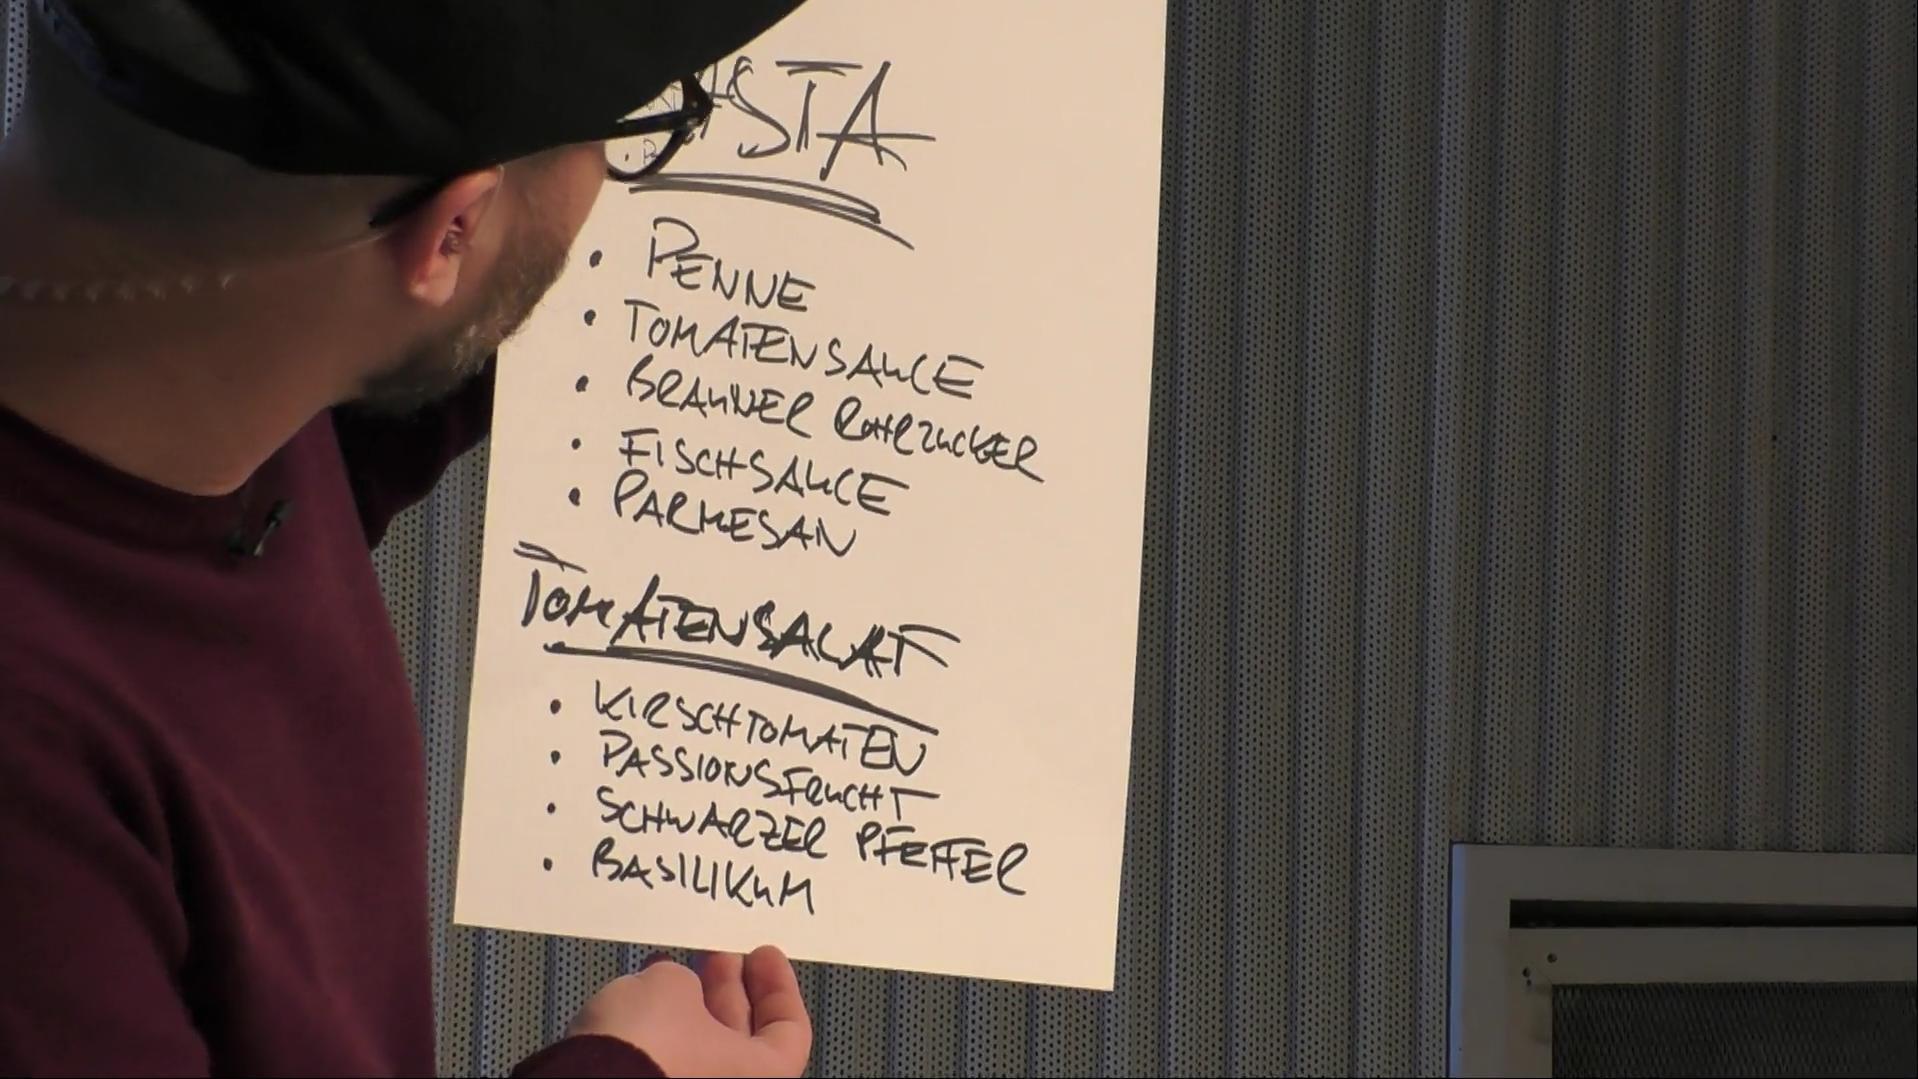 STA
• PENNE
• TOMATENSAUCE
• BRAUNER ROHRZUCKER
• FISCHSAUCE
• PARMESAN
TOMATENSALAT
• KIRSCHTOMATEN
• PASSIONSFRUCHT
• SCHWARZER PFEFFER
• BASILIKUM